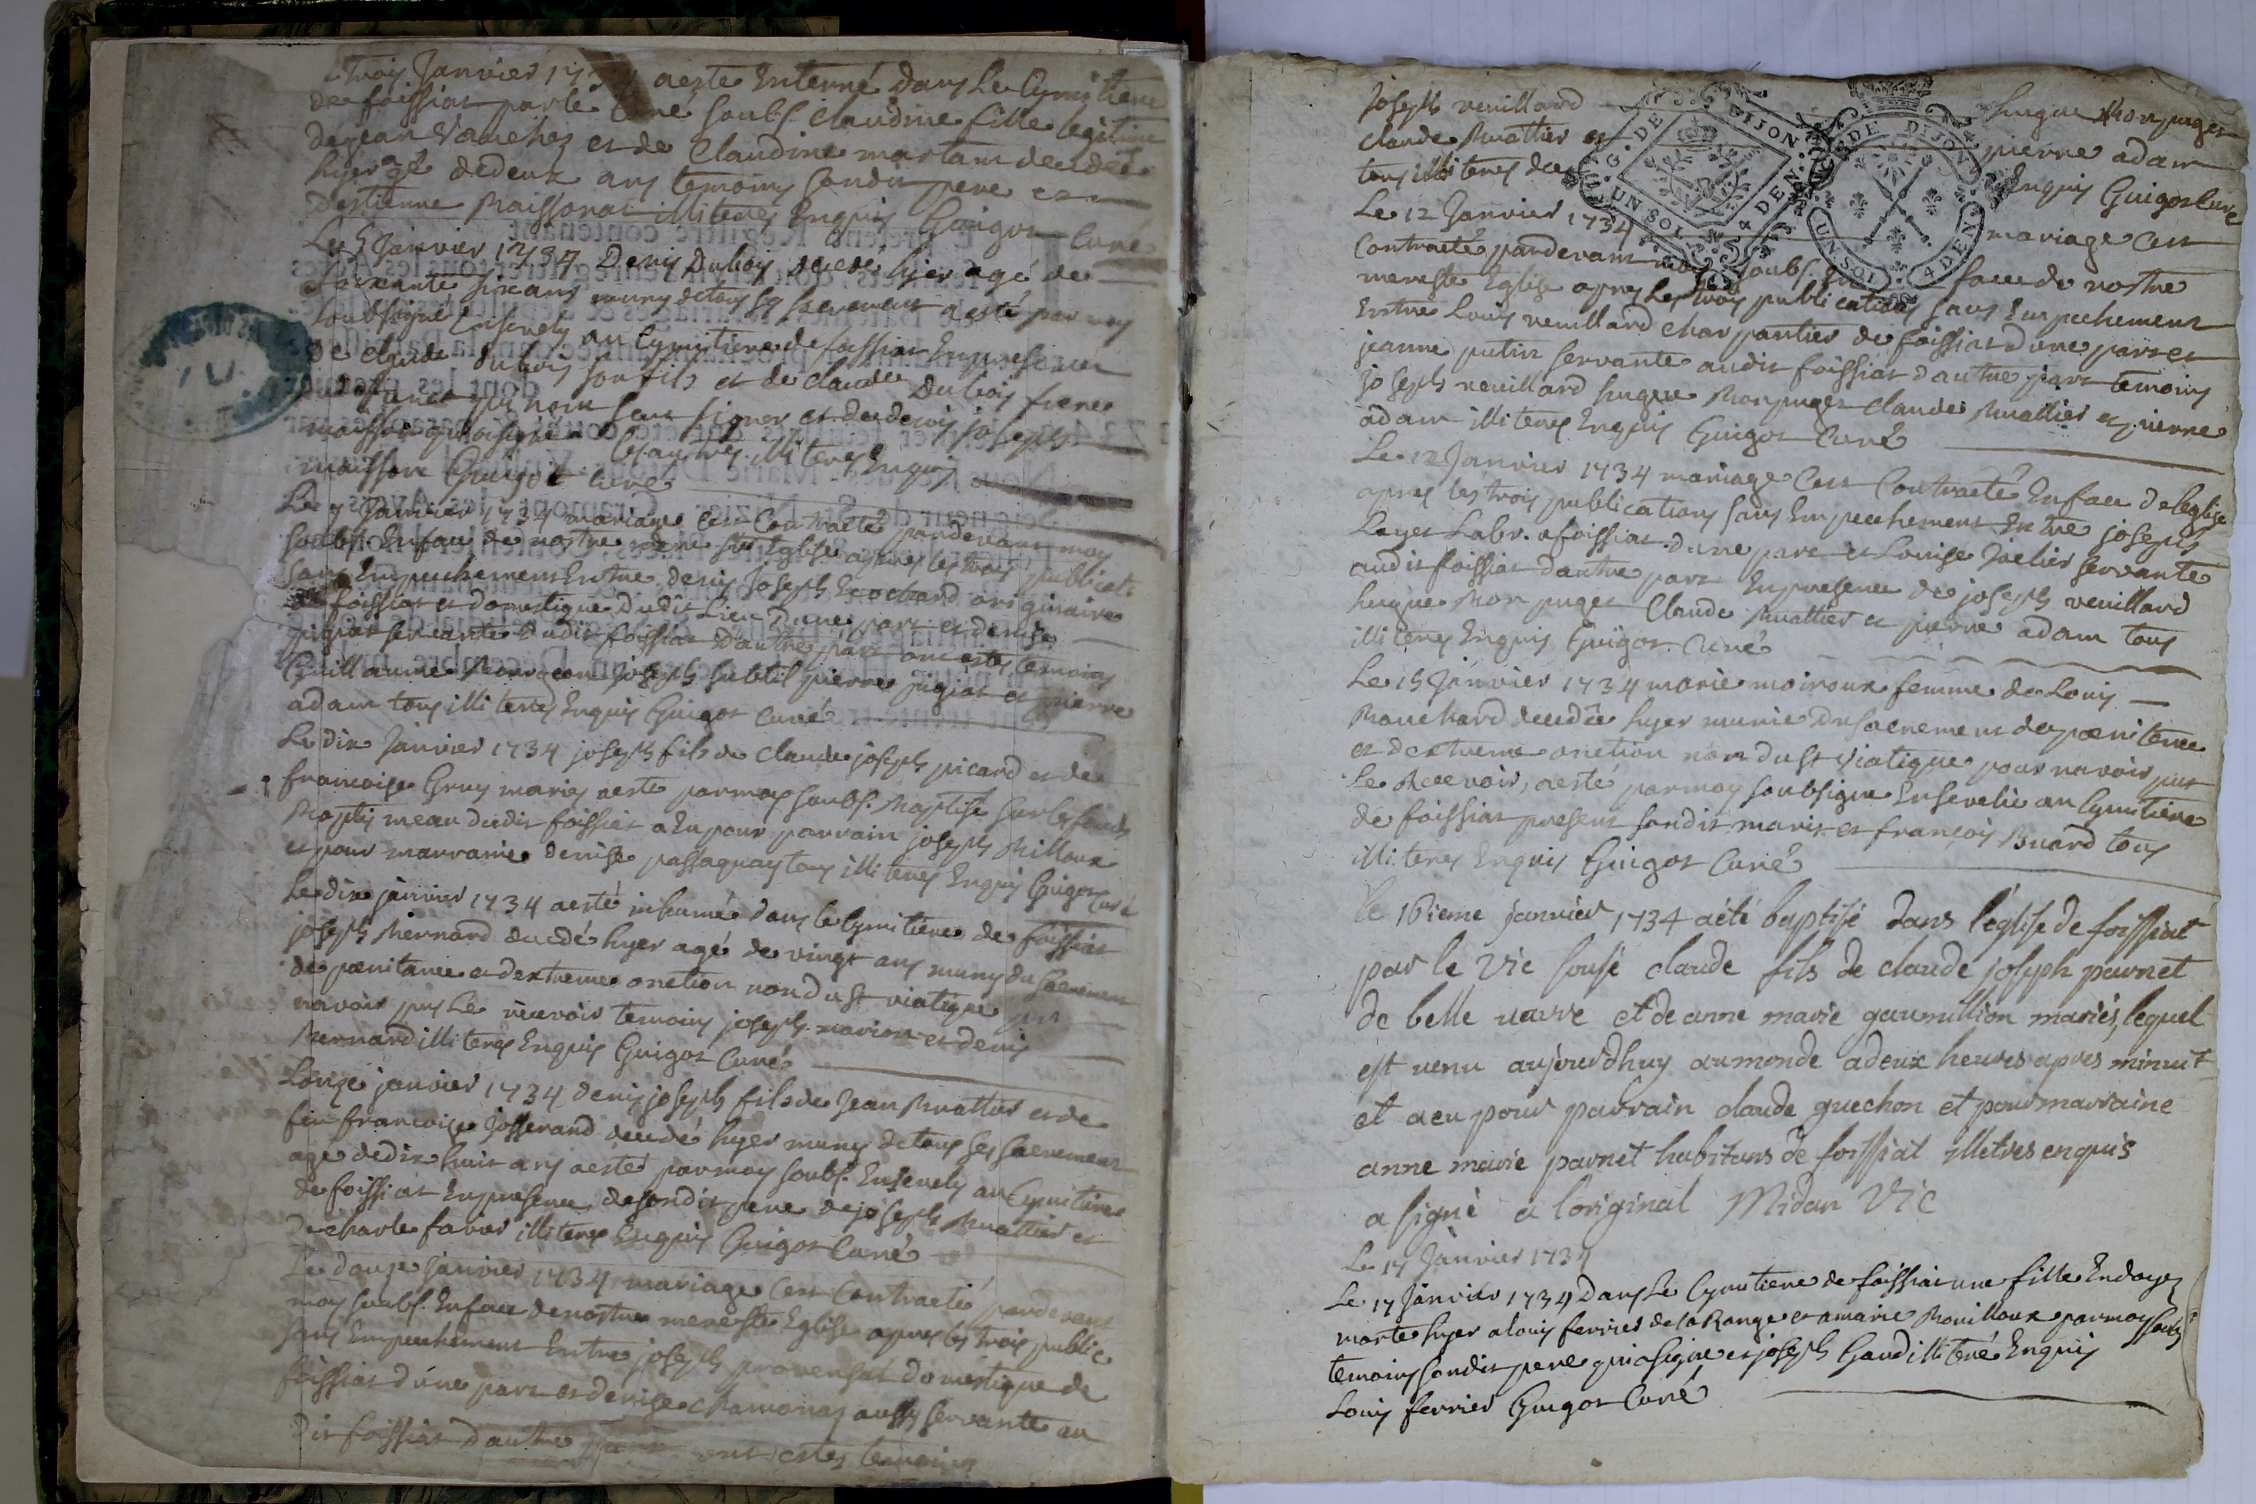 trois Janvier 1734 a esté Enterré dans Le Cymitiere
de foissiat par le Curé soubs. Claudine fille legitime
de jean Vauchez et de Claudine martam decedée
hyer agé de deux ans temoins sondit pere et
destienne Maissonat illiteres Enquis Guigot Curé
Le 5 Janvier 1734 Denis Dubois decede hyer agé de
soixante six ans muny de tous ses sacrements a esté par moy
soubsigné Ensevely au Cymitiere de foissiat En presence
de Claude Dubois son fils et de Claude Dubois frere
signer et de denis joseph
maisson qui a signé Les autres illiteres Enquis
maisson Guigot curé
Le 7 Janvier 1734 mariage c'est Contracté pardevant moy
soubs. En face de nostre mere ste Eglise apres les trois publicat.
sans Empechement Entre denis Joseph Ecochard originaire
de foissiat et domestique dudit Lieu d'une part et denise
pigiat servante audit foissiat d'autre part ont estes temoins
Guillaume joseph subtil pierre pigiat et pierre
adam tous illiteres Enquis Guigot curé
Le dix Janvier 1734 joseph fils de Claude joseph picard et de
francoise Gruy mariés a esté par moy soubs. Baptisé sur les fonds
Baptismeau dudit foissiat a Eu pour parrain joseph Milloux
et pour marraine denise passaquay tous illiteres Enquis Guigot Curé
Le dix janvier 1734 a esté inhumé dans le Cymitiere de foissiat
joseph Bernard decedé hyer agé de vingt ans muny du sacrement
de pœnitance et d'extreme onction non du st viatique
n'avoir pus Le recevoir temoins joseph marion et denis
Bernard illiteres Enquis Guigot Curé
L'onze janvier 1734 denis joseph fils de Jean Buattier et de
feu francoise Josserand decedé hyer muny de tous ses sacrement
agé de dix huit ans a esté par moy soubs. Ensevely au Cymitiere
de foissiat En presence de sondit pere de joseph Buattier et
de charle favier illiteres Enquis Guigot Curé
Le douze janvier 1734 mariage c'est Contracté pardevant
moy soubs. En face de nostre mere ste Eglise apres les trois public.
sans Empechement Entre joseph provensat domestique de
foissiat d'une part et denise chamonay aussy servante au
dit foissiat d'autre part ont estes temoins
Joseph veuillard hugue Monpuget
Claude Buattier et pierre adam
tous illiteres Enquis Guigot Curé
Le 12 Janvier 1734 mariage c'est
Contracté pardevant moy soubs. En face de nostre
mere ste Eglise apres Les trois publications sans Empechement
Entre Louis veuillard charpantier de foissiat d'une part et
jeanne putin servante audit foissiat d'autre part temoins
joseph veuillard hugue Monpuget Claude Buattier et pierre
adam illiteres Enquis Guigot Curé
Le 12 Janvier 1734 mariage c'est Contracté En face de l'eglise
apres les trois publications sans Empechement Entre joseph
Layet Labr. a foissiat d'une part et Louise Joelier servante
audit foissiat d'autre part En presence de joseph veuillard
hugue Monpuget Claude Buattier et pierre adam tous
illiteres Enquis Guigot Curé
Le 15 Janvier 1734 marie moiroux femme de Louis
Bouchard decedée hyer munie du sacrement de pœnitence
et d'extreme onction non du st viatique pour n'avoir put
Le Recevoir, a esté par moy soubsigné Ensevelie au Cymitiere
de foissiat present sondit maris et françois Buard tous
illiteres Enquis Guigot Curé
le 16ieme janvier 1734 a été baptisé dans l'église de foissiat
par le Vic sousé claude fils de claude joseph parnet
de belle vavre et de anne marie gaumillion mariés, lequel
est venu aujourdhuy au monde a deux heures apres minuit
et a eu pour parrain claude guechon et pour marraine
anne marie parnet habitans de foissiat illetres enquis
a signé a l'original Midan Vic
Le 17 Janvier 1734
Le 17 janvier 1734 dans Le Cymitiere de foissiat une fille Endoyez
morte hyer a louis ferrier de la Range et a marie Bouilloux par moy soubs.
temoins sondit pere qui a signé et joseph Gaud illiteré Enquis
Louis ferrier Guigot Curé
G. DE DIJON
UN SOL 4 DEN
G. DE DIJON
UN SOL 4 DEN